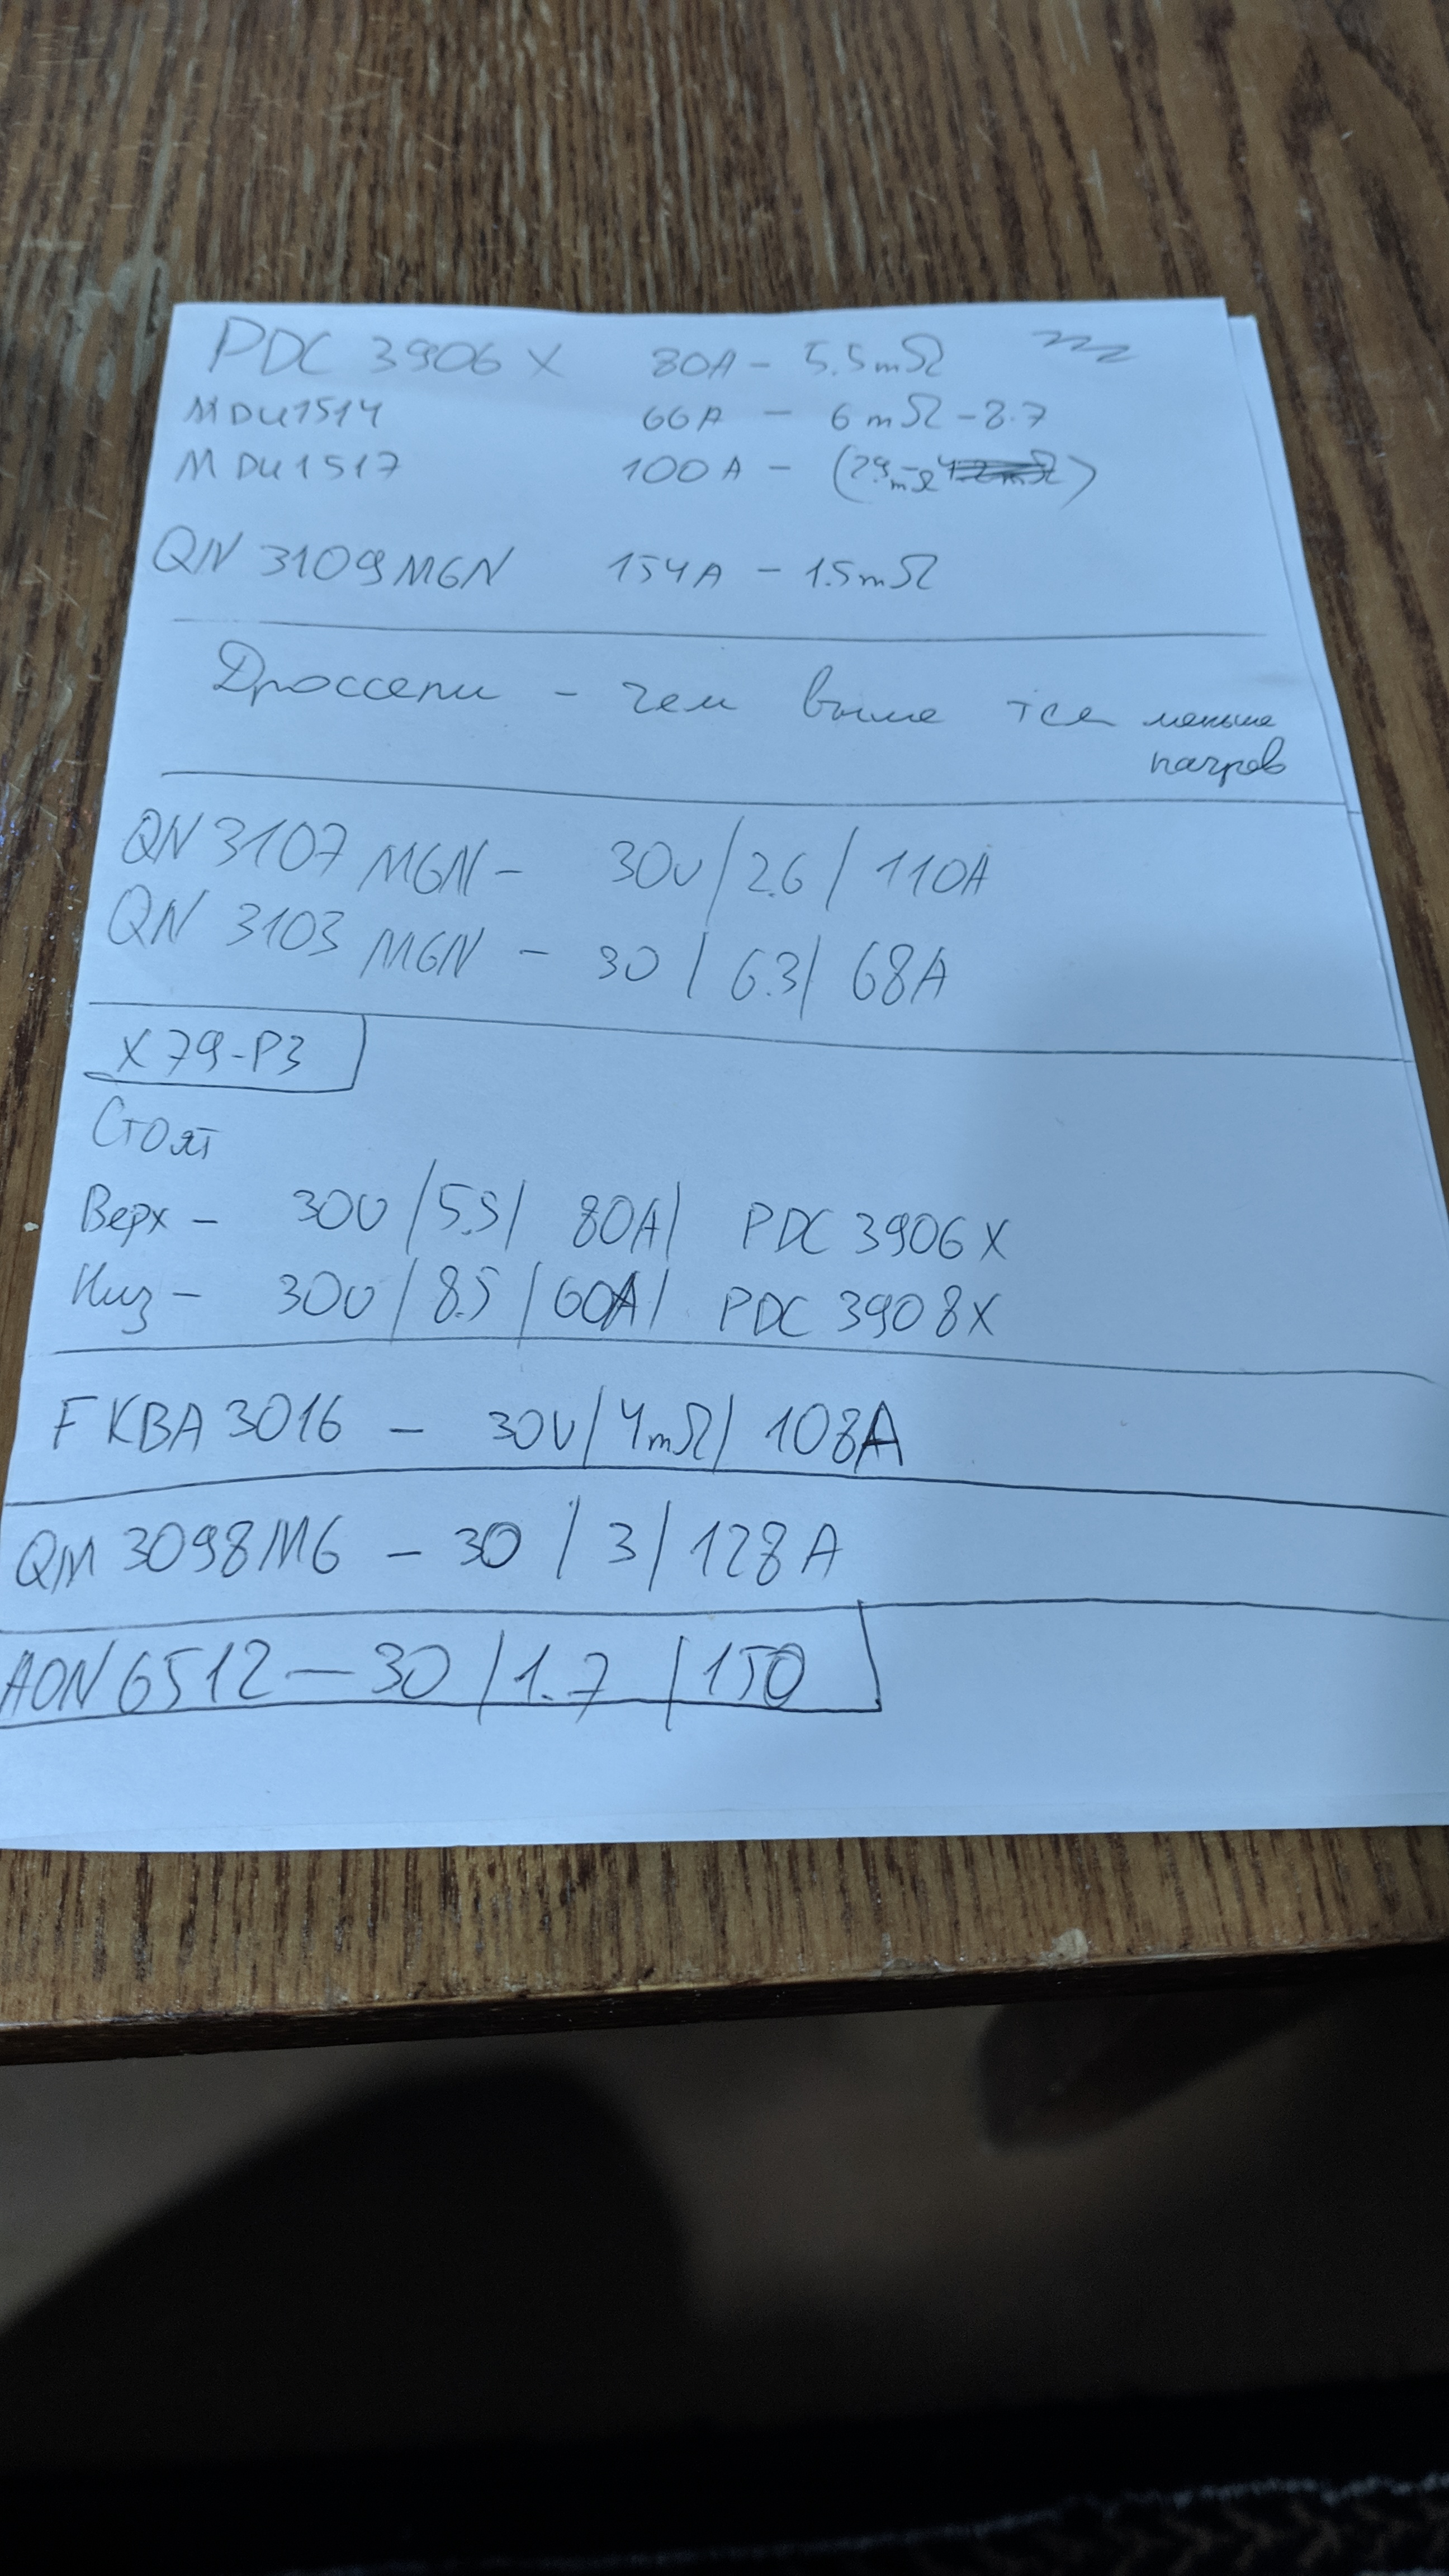 PDC 3906 X 80A - 5.5mΩ
MDU1514 66A - 6mΩ - 8.7
MDU1517 100A - (2.9mΩ)
QN 3109 MGN 154A - 1.5mΩ
Дроссели - чем выше тем меньше
нагрев
QN 3107 MGN - 30V/2.6/110A
QN 3103 MGN - 30/6.3/68A
X79-P3
Стоят
Верх - 30V/5.5/80A/ PDC 3906 X
Низ - 30V/8.5/60A/ PDC 3908X
FKBA 3016 - 30V/4mΩ/108A
QM 3098M6 - 30/3/128A
AON6512 - 30/1.7/150